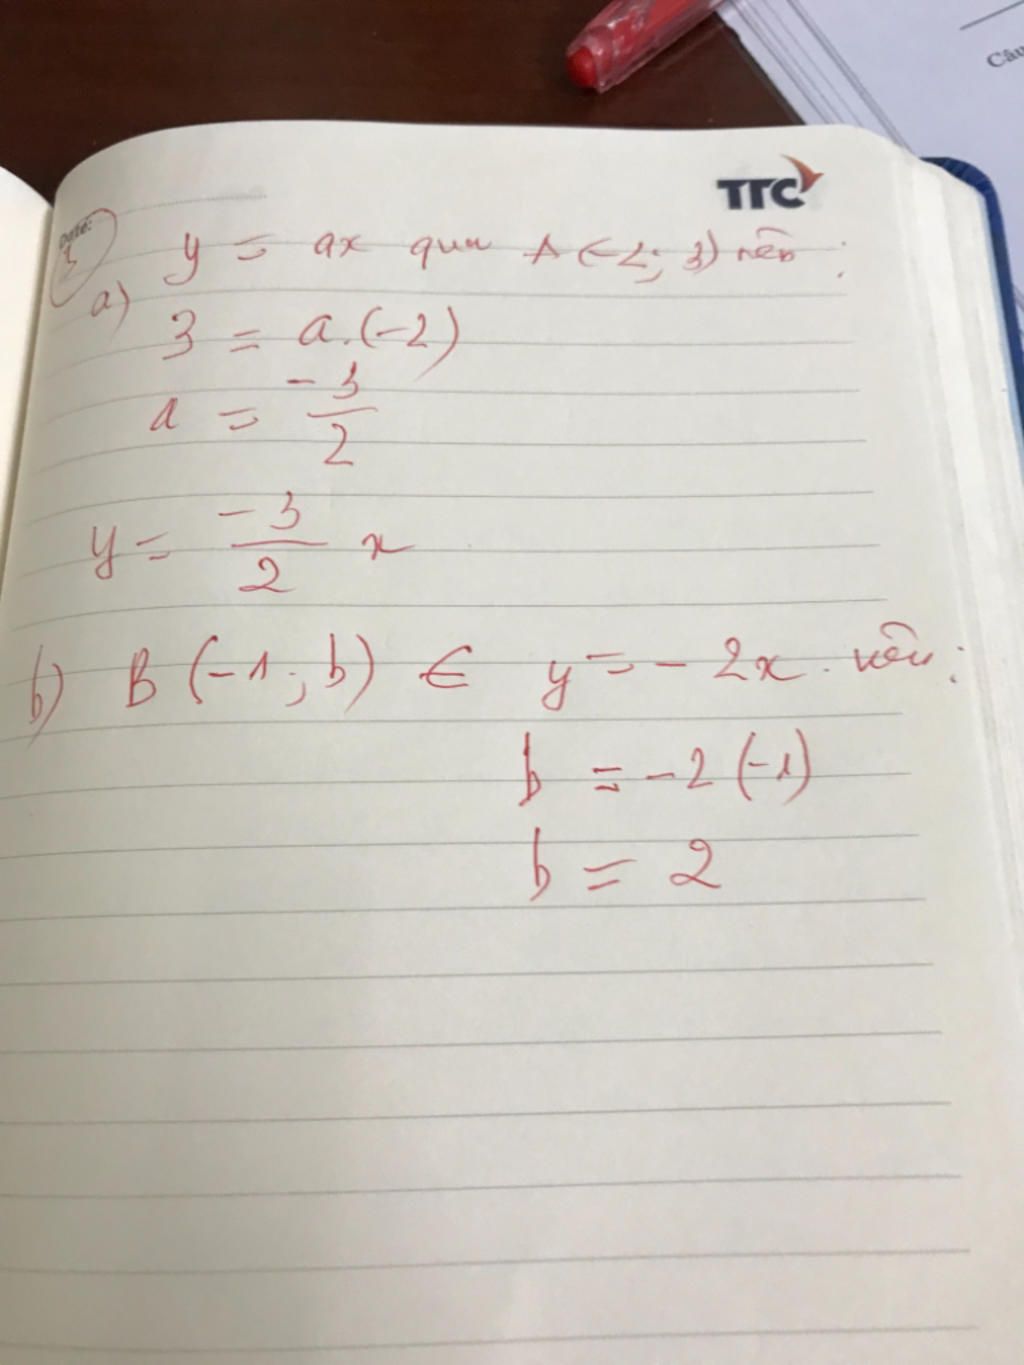 Câu
TTC
Date:
3
y = ax qua A(-2; 3) nên:
a)
3 = a.(-2)
a = -3/2
y = -3/2 x
b) B (-1; b) ∈ y = - 2x nên:
b = -2 (-1)
b = 2